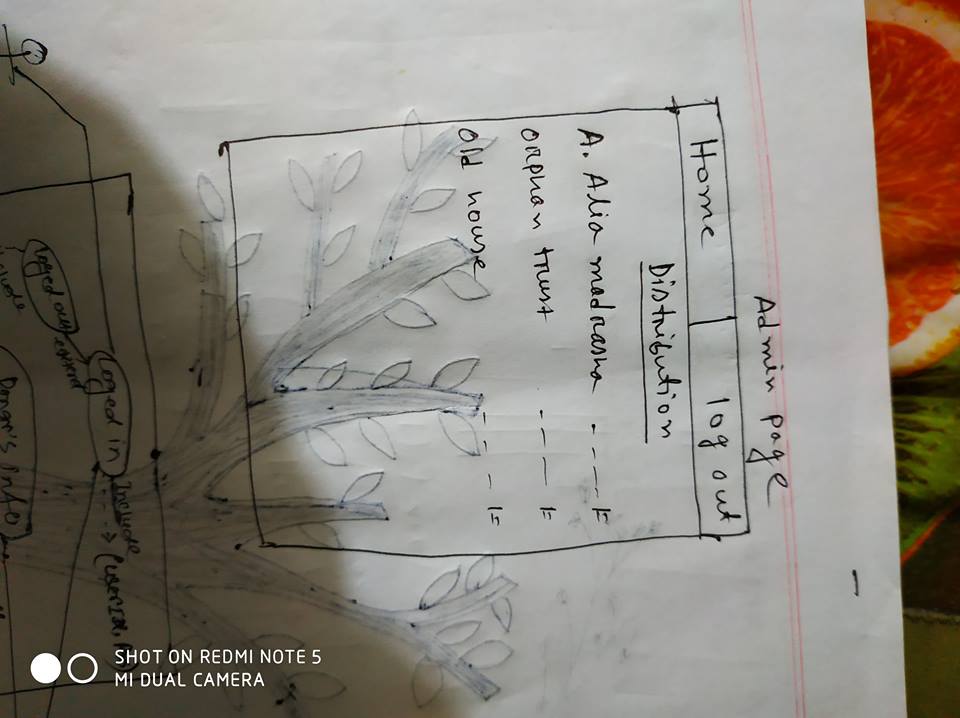 Admin page
Home | log out
Distribution
A. Alia madrasha - - - - F
orphan trust - - - - F
old house - - - - F
logged out
extend
include
Loged in
include
(userId,
Donar's info
SHOT ON REDMI NOTE 5
MI DUAL CAMERA